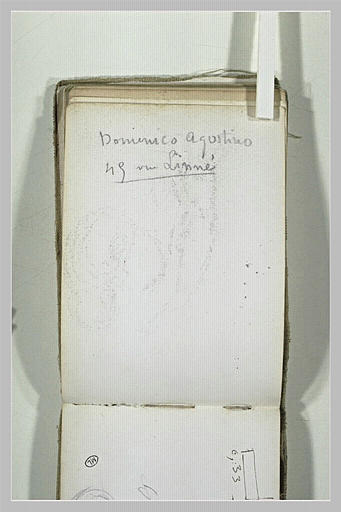 Domenico Agostino
49 rue Linné
0,33
ML